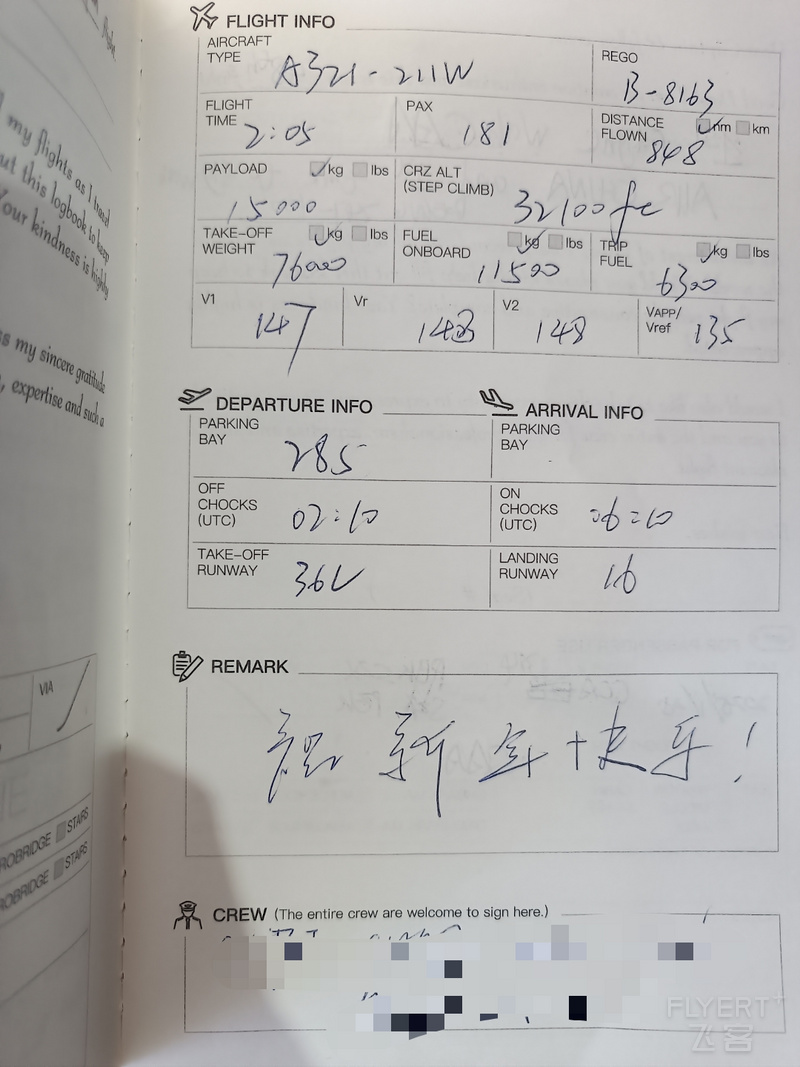 flight.
my flights as I travel
out this logbook to keep
Your kindness is highly
ss my sincere gratitude
, expertise and such a
VIA
ROBRIDGE STARS
ROBRIDGE STARS
FLIGHT INFO
AIRCRAFT TYPE A321-211W
REGO B-8163
FLIGHT TIME 2:05
PAX 181
DISTANCE FLOWN nm km 848
PAYLOAD kg lbs 15000
CRZ ALT (STEP CLIMB) 32100
TAKE-OFF WEIGHT kg lbs 76000
FUEL ONBOARD kg lbs 11500
TRIP FUEL kg lbs 6300
V1 147
Vr 148
V2 148
VAPP/Vref 135
DEPARTURE INFO
PARKING BAY 285
OFF CHOCKS (UTC) 02:10
TAKE-OFF RUNWAY 36L
ARRIVAL INFO
PARKING BAY
ON CHOCKS (UTC) 06:10
LANDING RUNWAY 16
REMARK
祝 新年快乐!
CREW (The entire crew are welcome to sign here.)
FLYERT+
飞客